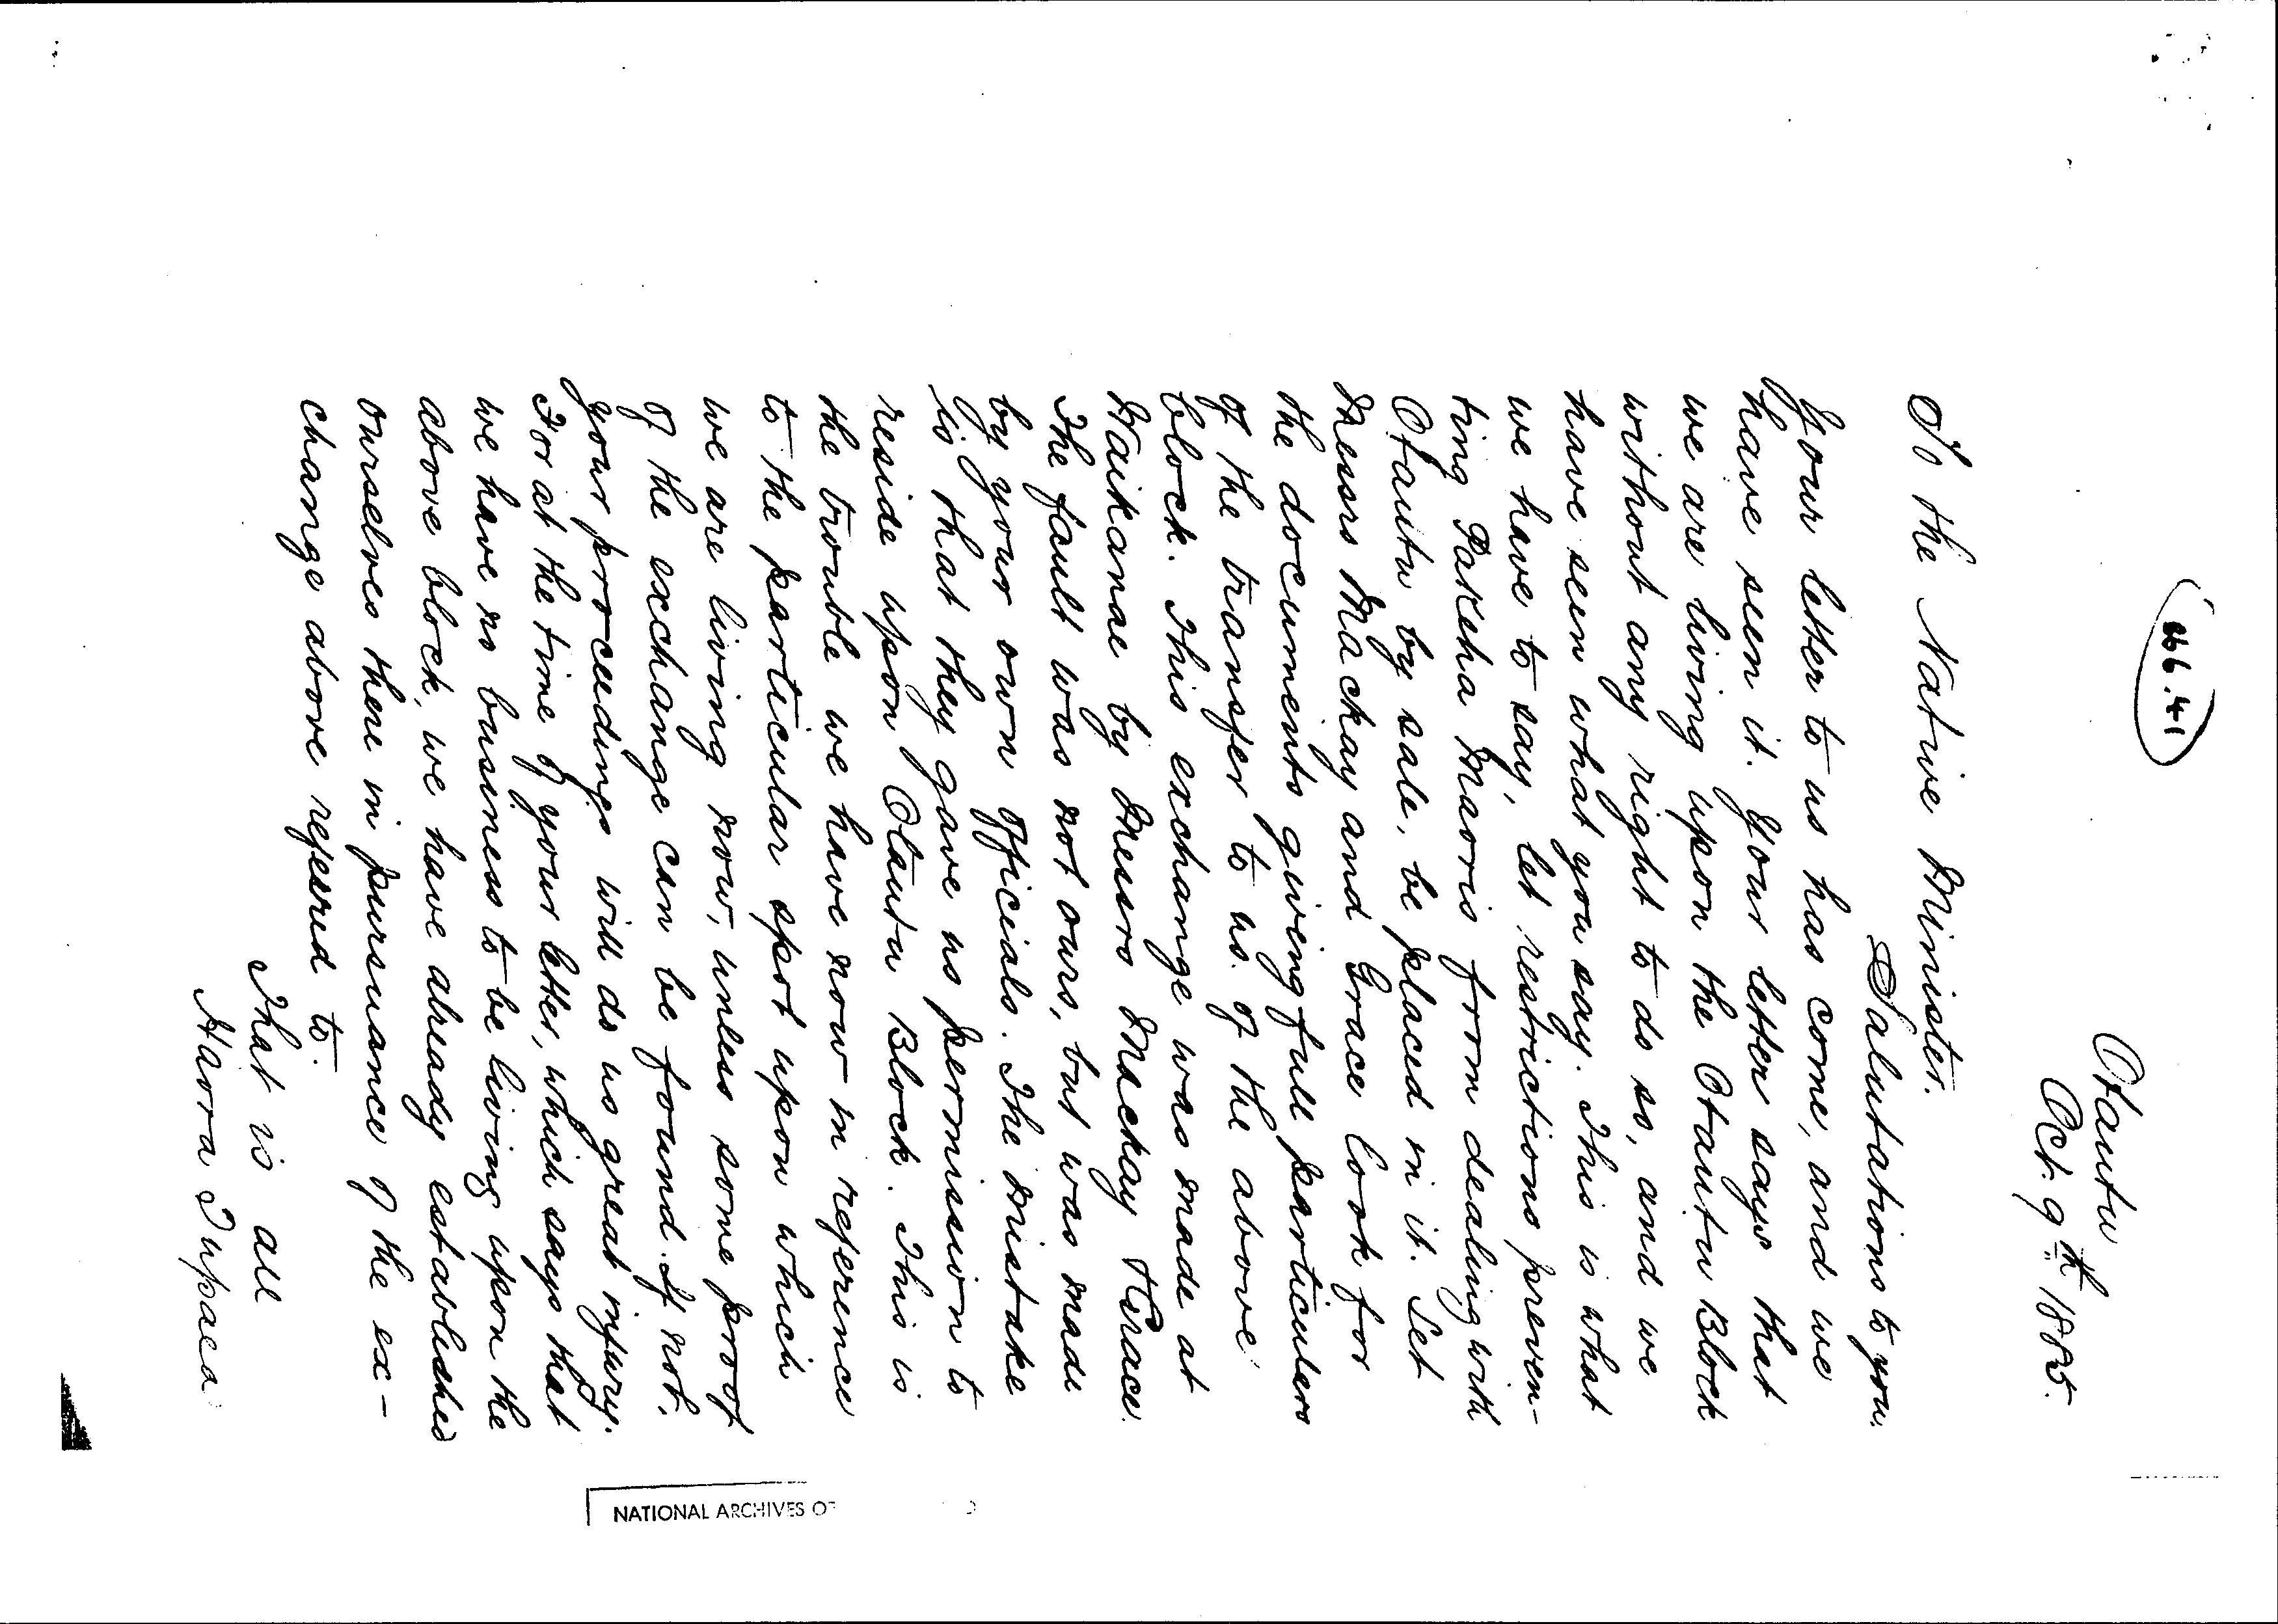 466.41
Otautu
Oct: 9th 1885.
To the Native Minister.
Salutations to you.
Your letter to us has come, and we
have seen it. Your letter says that
we are living upon the Otautu Block
without any right to do so, and we
have seen what you say. This is what
we have to say, let restrictions preven-
ting Pakeha Maoris from dealing with
Otautu by sale, be placed on it. Let
Messrs Mackay and Grace look for
the documents giving full particulars
of the transfer to us of the above
block. This exchange was made at
by Messrs Mackay & Grace.
The fault was not ours, but was made
by your own officials. The mistake
is that they gave us permission to
reside upon Otautu Block. This is
the trouble we have now in reference
to the particular spot upon which
we are living now, unless some proof
of the exchange can be found. If not,
your proceedings will do us great injury.
For at the time of your letter, which says that
we have no business to be living upon the
above block, we have already established
ourselves there in pursuance of the ex-
change above referred to.
That is all
Tupaea
NATIONAL ARCHIVES OF